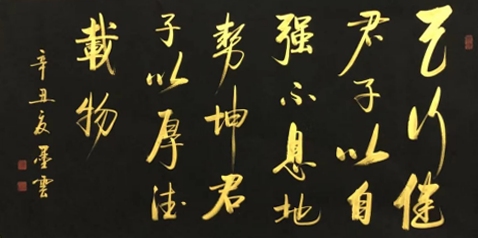 天行健
君子以自
强不息地
勢坤君
子以厚德
載物
辛丑夏墨雲